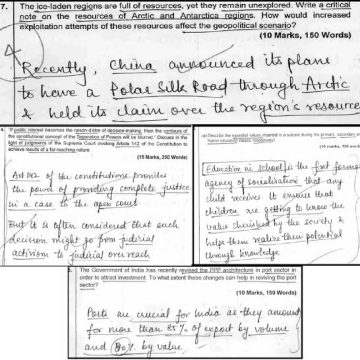 7. The ice-laden regions are full of resources, yet they remain unexplored. Write a critical
note on the resources of Arctic and Antarctica regions. How would increased
exploitation attempts of these resources affect the geopolitical scenario?
(10 Marks, 150 Words)
Recently, China announced its plans
to have a Polar Silk Road through Arctic
& held its claim over the region's resource
If public interest becomes the raison d'etre of decision-making, then the contours of
the constitutional concept of the Separation of Powers will be blurred." Discuss in the
light of judgements of the Supreme Court invoking Article 142 of the Constitution to
achieve results of a far-reaching nature.
(15 Marks, 250 Words)
Art 142 of the constitution provides
the power of providing complete justice
in a case to the apex court.
But it is often considered that such
decision might go from judicial
activism to judicial overreach
Describe the essential values in a student during the primary, secondary
higher education
Education in school is the first formal
agency of socialisation that any
child receives. It ensures that
children are getting to know the
value cherished by the society &
helps them realise their potential
through knowledge.
5. The Government of India has recently revised the PPP architecture in port sector in
order to attract investment. To what extent these changes can help in reviving the port
sector?
(10 Marks, 150 Words)
Ports are crucial for India as they amount
for more than 85% of export by volume
and by value